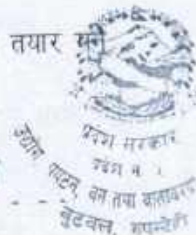 तयार गर्ने
प्रदेश सरकार
प्रदेश नं. ५
उद्योग पर्यटन, वन तथा वातावरण
बुटवल, रुपन्देही